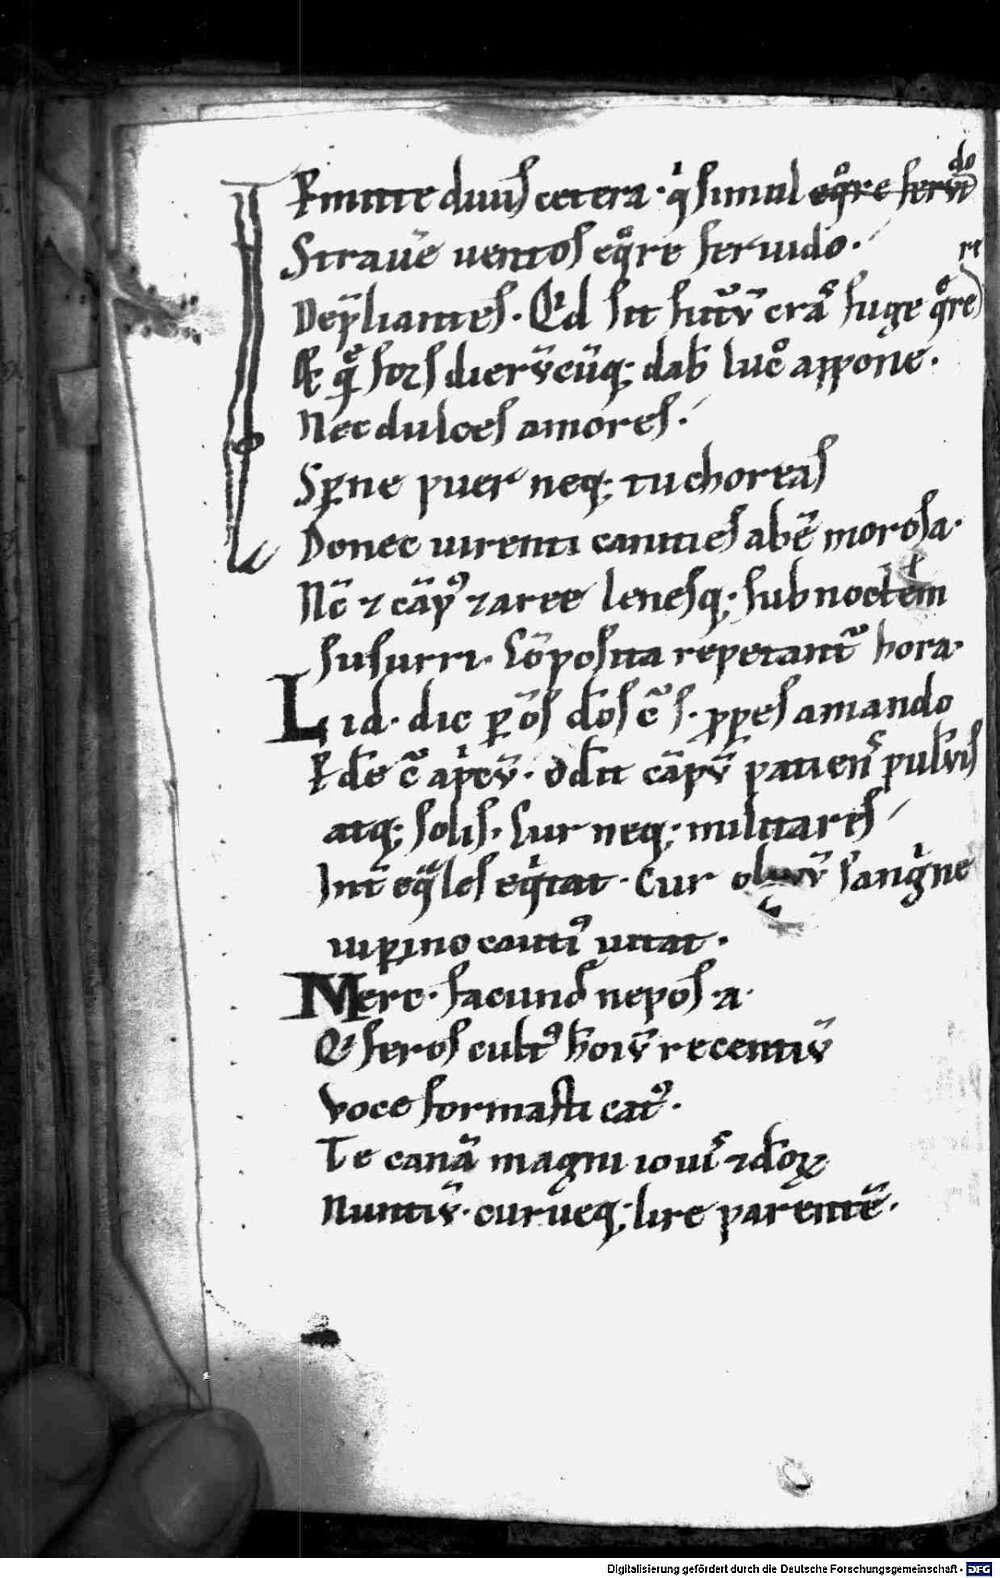 Pmitte diuis cetera · qͥ simul eqͦre ferv̄ do
Strauē uentos eqͦre feruido ·
Dep̄liantes · Qͥd sit futv̄ crās fuge qͦre re
& qͣ̄ fors dierv̄cūq; dab̄ lucͦ appone ·
Nec dulces amores ·
Sp̲ne puer neq; tu choreas
Donec uirenti canities abē morosa ·
Nc̄ & cāpꝰ & aree lenesq; sub noctem
susurri · Cōposita repetant᷑ hora ·
Lid · dic p̲ ōs dōs c᷑ s · pp̲es amando
P̲de c᷑ apͥcv̄ · odit cāpv̄ patiens pulv̄is
atq; solis · Cur neq; militares
Int̄ eqͣles eqͥtat · Cur olivv̄ sangͥne
uip̲ino cautiꝰ uitat ·
Merc · facund nepos a ·
Qͥ feros cultꝰ hoīv̄ recentiv̄
voce formasti catꝰ ·
Te canā magni iouis & dōꝝ
Nuntiv̄ · curueq; lire parentē ·
Digitalisierung gefördert durch die Deutsche Forschungsgemeinschaft - DFG